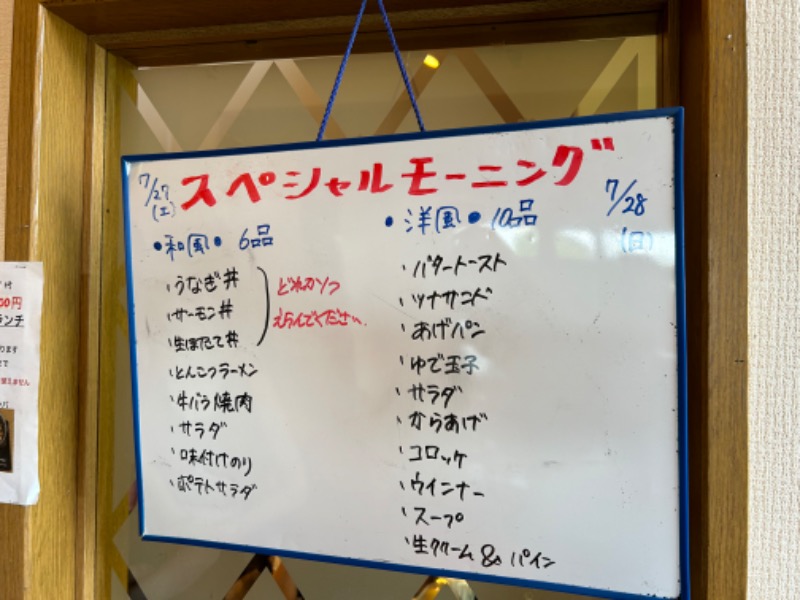 スペシャルモーニング
7/27
(土)
・和風・ 6品
・うなぎ丼
・サーモン丼
・生ほたて丼
どれか1つ
えらんでください。
・とんこつラーメン
・牛バラ焼肉
・サラダ
・味付けのり
・ポテトサラダ
7/28
(日)
・洋風・ 10品
・バタートースト
・ツナサンド
・あげパン
・ゆで玉子
・サラダ
・からあげ
・コロッケ
・ウインナー
・スープ
・生クリーム & パイン
00円
ランチ